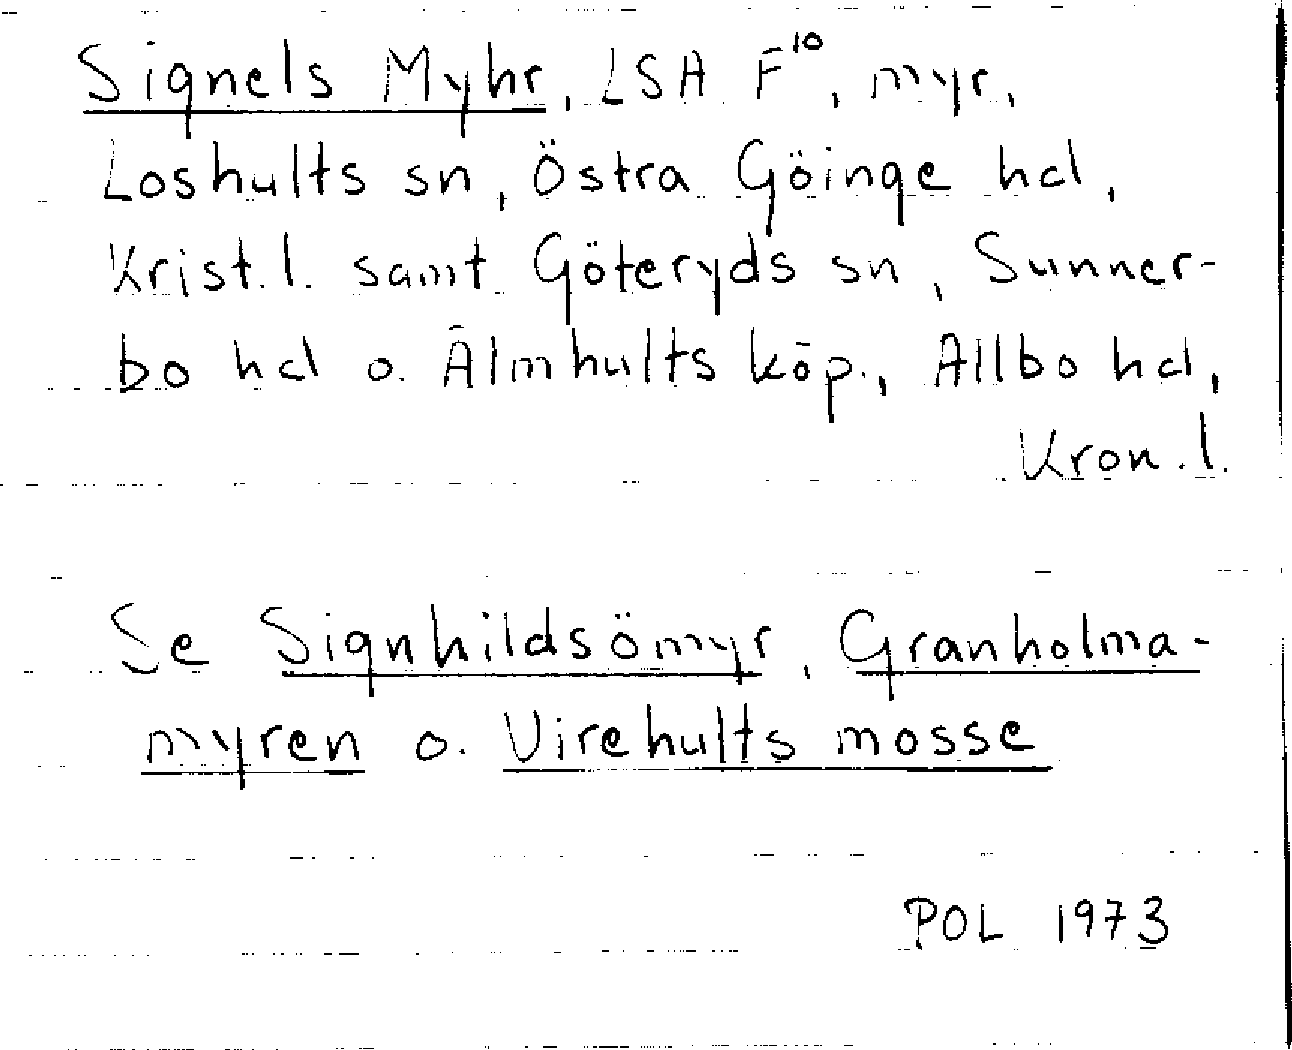 Signels Myhr, LSA F¹⁰, myr,
Loshults sn, Östra Göinge hd,
Krist. l. samt Göteryds sn, Sunner-
bo hd o. Älmhults köp., Allbo hd,
Kron. l.
Se Signhildsömyr, Granholma-
myren o. Virehults mosse
POL 1973